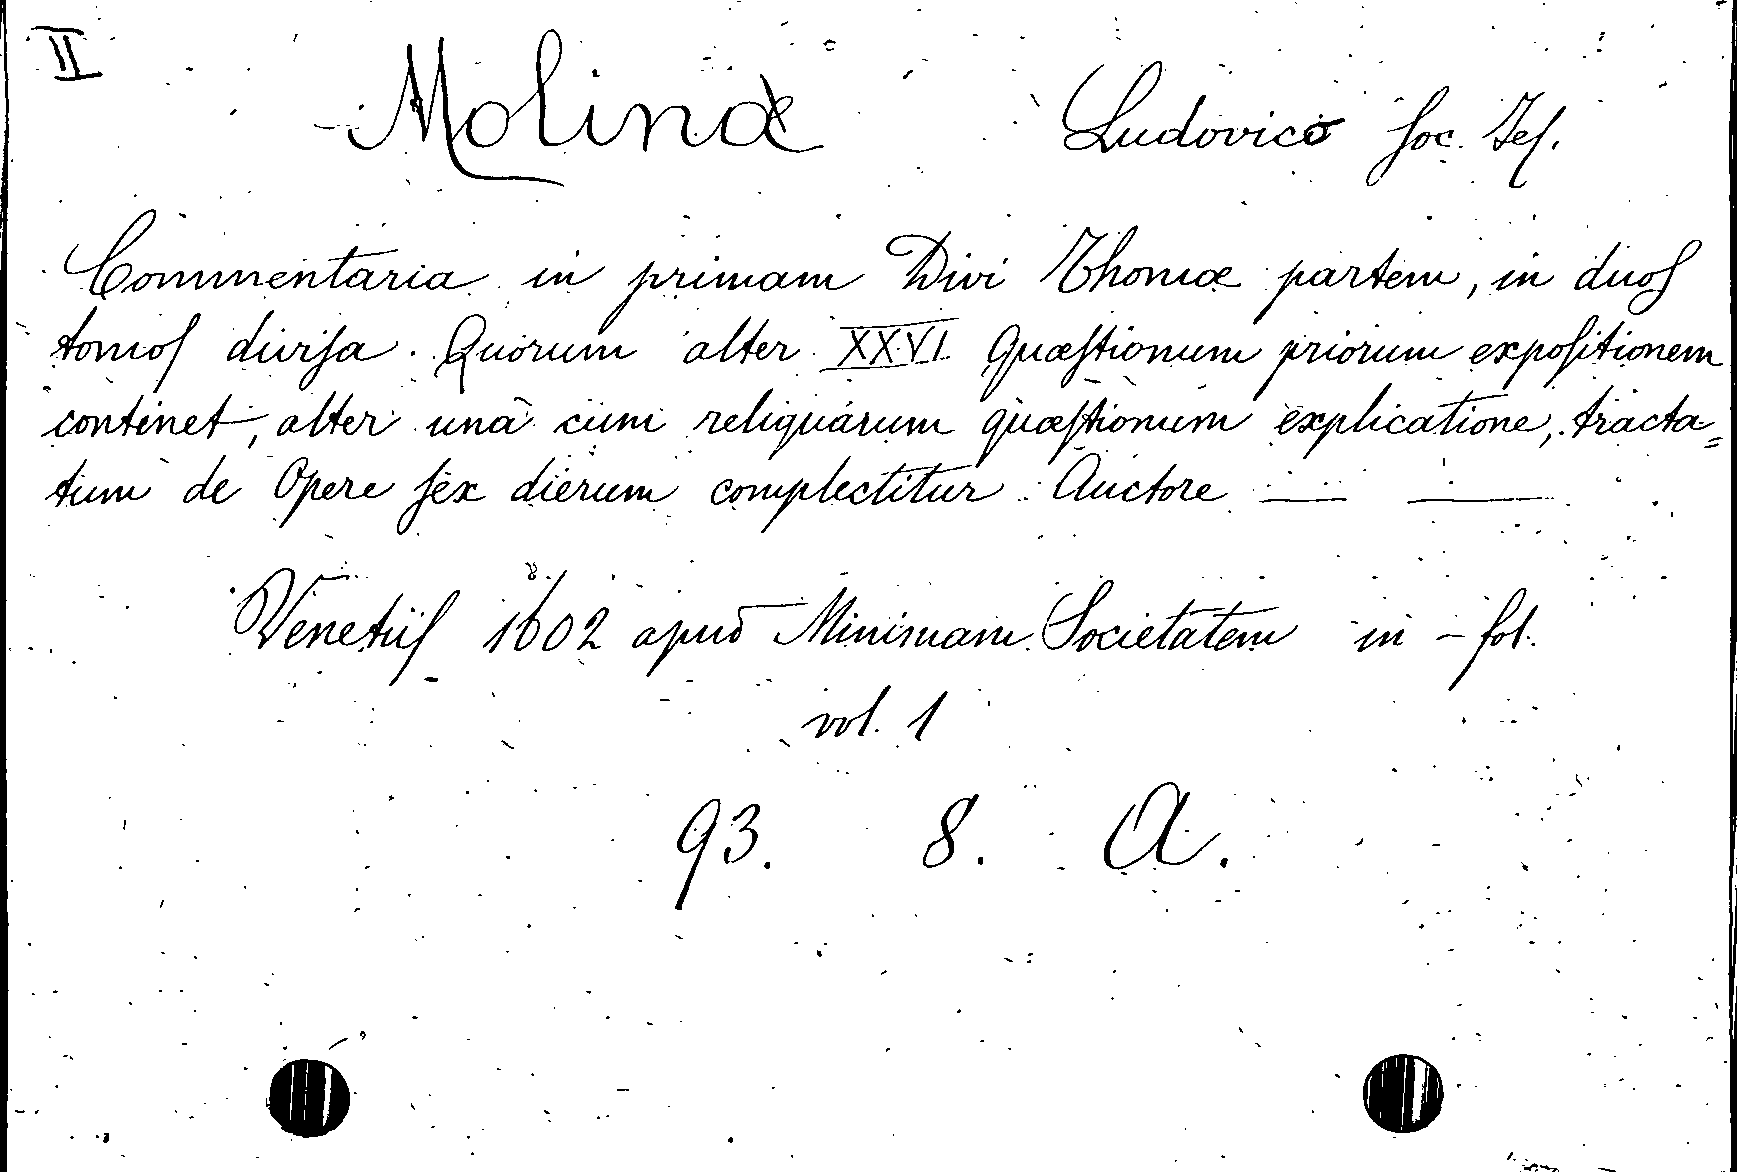 II
Molinæ Ludovico Soc. Jes.
Commentaria in primam Divi Thomæ partem, in duos
tomos divisa. Quorum alter XXVI Quæstionum priorum expositionem
continet, alter unà cum reliquarum quæstionum explicatione, tracta=
tum de Opere sex dierum complectitur. Auctore — —
Venetiis 1602 apud Minimam Societatem in-fol.
vol. 1
93. 8. A.